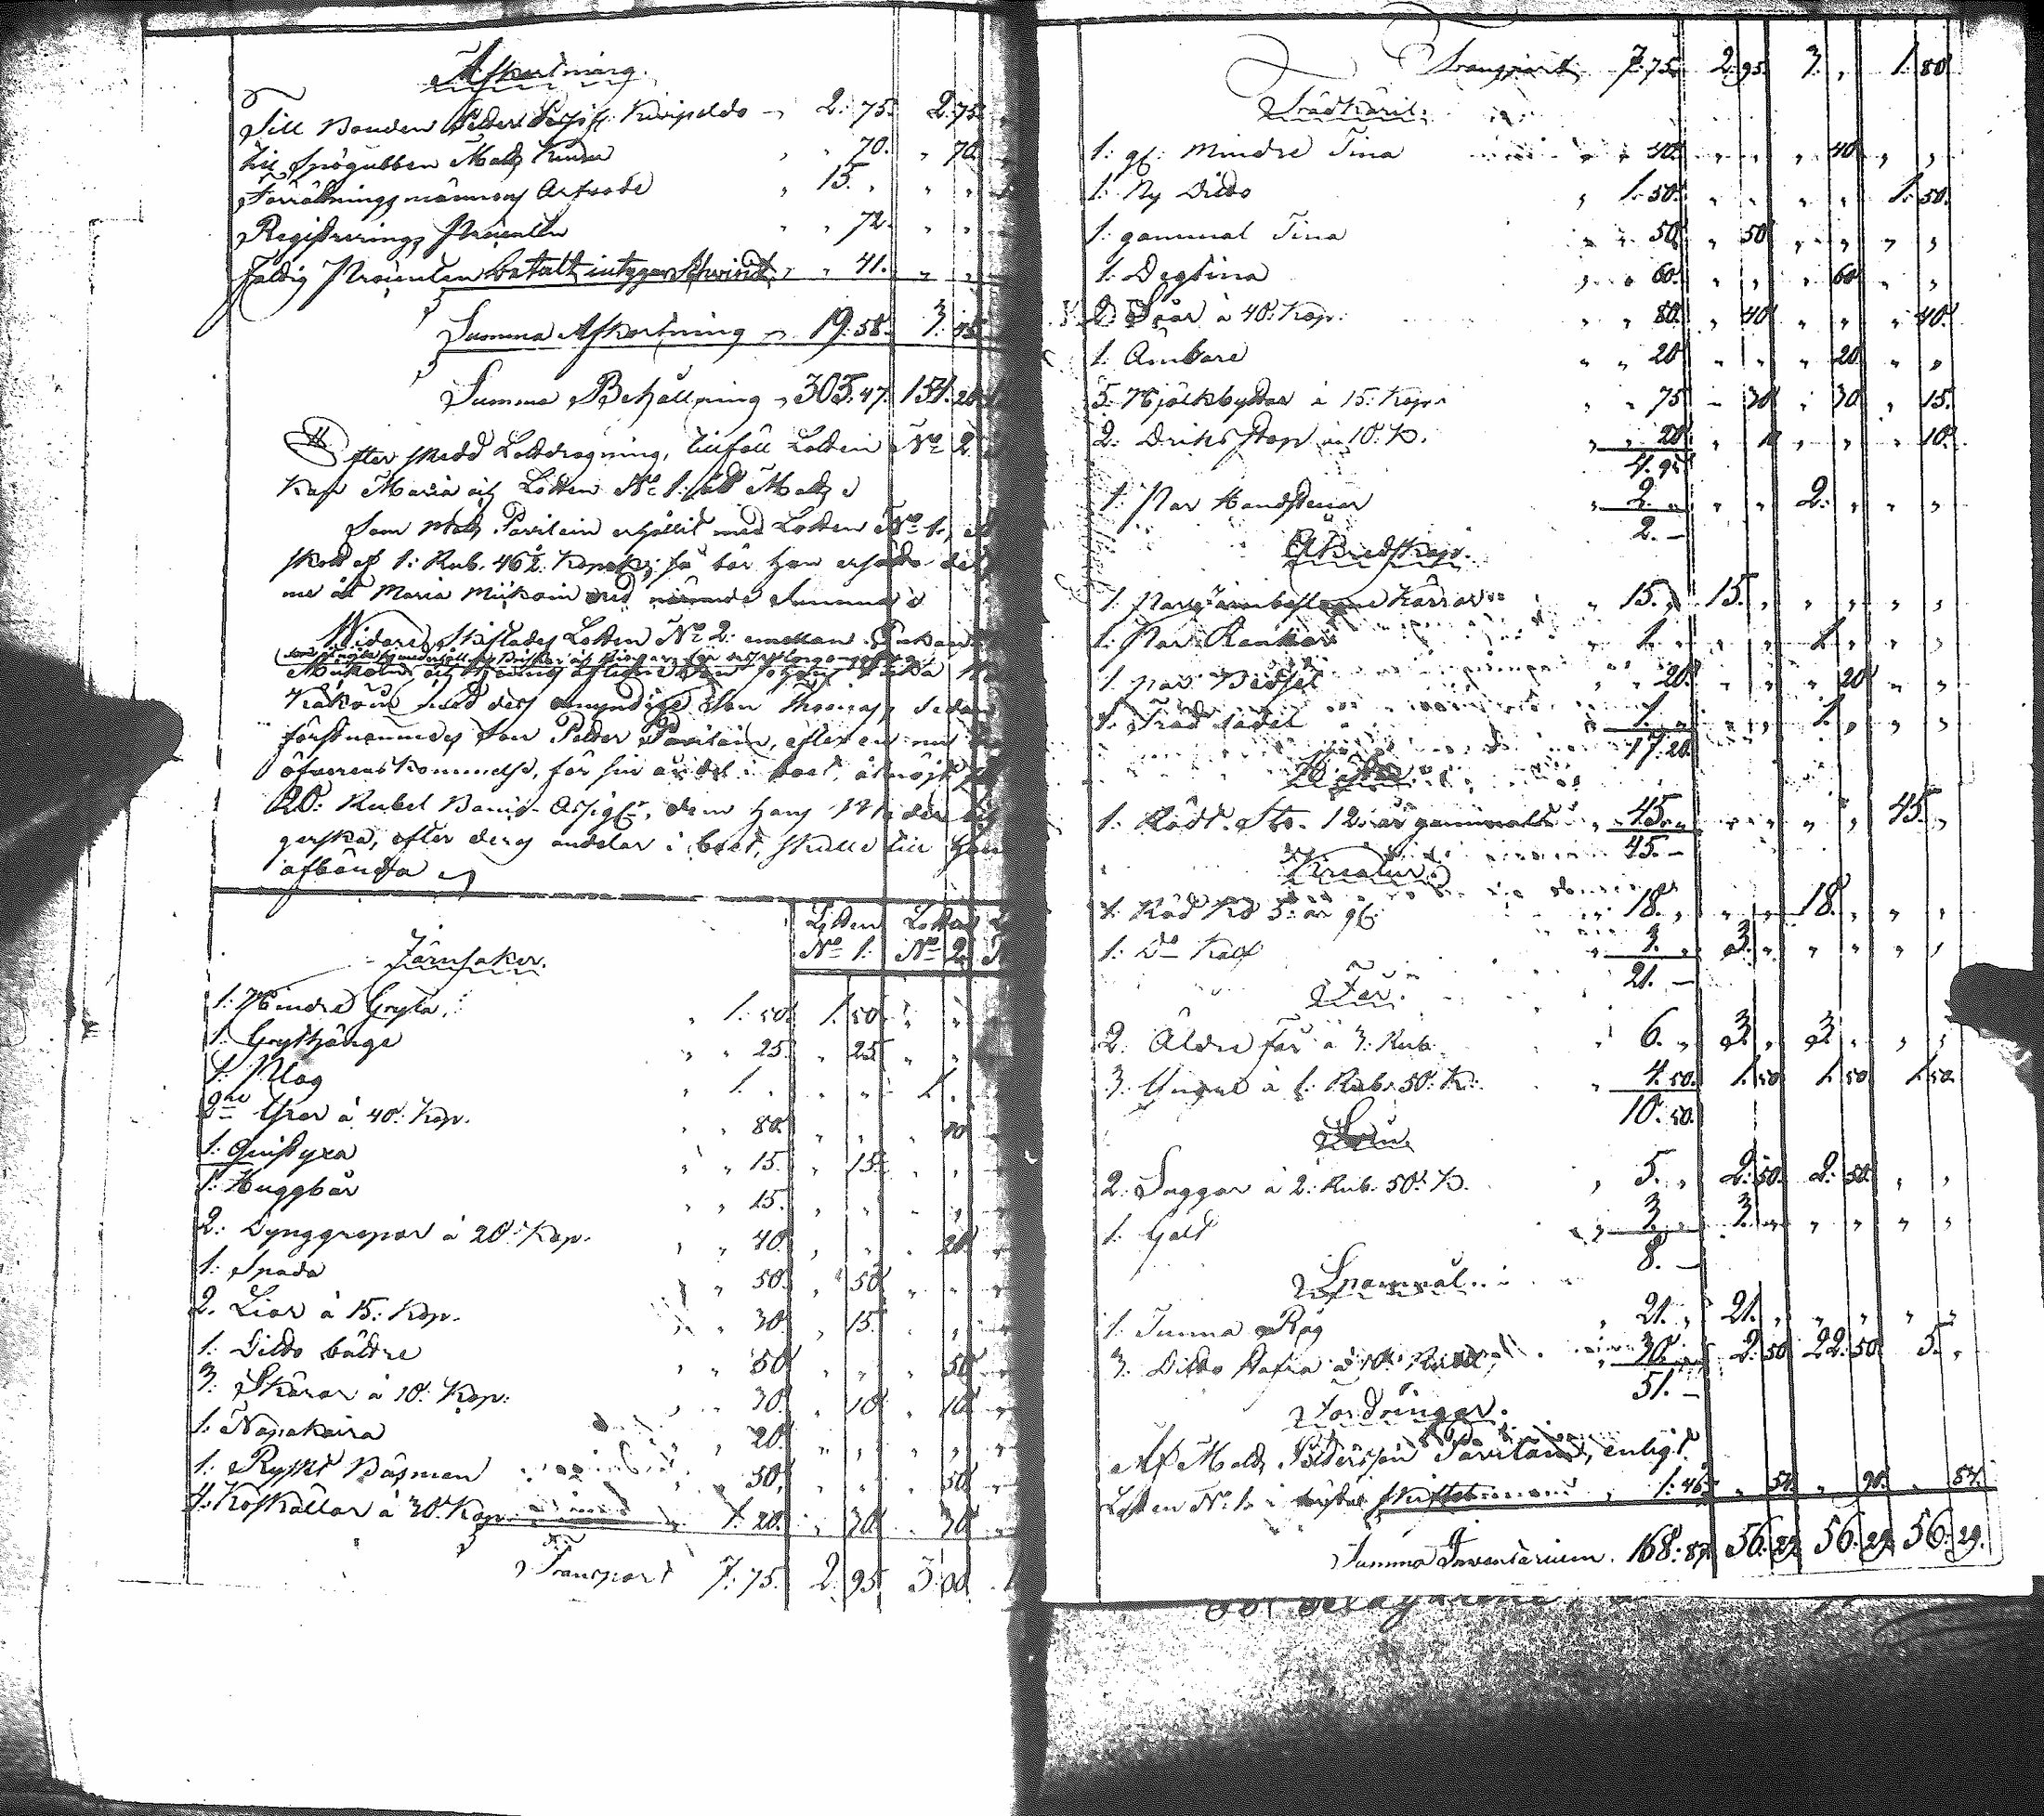 Afkortning.
Till Bonden Petter Kivipeldo 2:75. 2:75
Till Matz 70. 70
Förrättningsmännens Arfvode 15.
Registrerings Procenten 72.
Fattig Procenten betalt intygar 41.
Summa Afkortning 19:58. 3:45
Summa Behållning 303:47. 151:
Efter skedd Lottdragning, tillföll Lotten No 2
Maria och Lotten No 1: Matz
Som Matz Pavilain erhållit med Lotten No 1,
af 1: Rub. 46½ Kopek; så bör han ersätta
me åt Maria med nämnde Summa
Vidare Skiftades Lotten No 2: emellan
med dess omyndige Son Thomas, sedan
förstnemndes Son Petter Pavilain, efter en
öfverenskommelse, för sin andel i boet, åtnöjt
20: Rubel Banco Assigr, dem hans
efter deras andelar i boet, skulle till
afbörda
Lotten No 1: Lotten No 2
Järnsaker.
1: Mindre Gryta, 1:50 1:50
1: Grythänge 25. 25
1: Plog 1. 1.
2ne Yxor à 40: Kop. 80. 40
1: 15. 15.
1: Huggbår 15.
2: Dynggrepar à 20: Kop. 40. 20.
1: Spada 50. 50
2. Liar à 15: Kop. 30 15.
1: Ditto bättre 50 50
3: Skäror à 10: Kop: 30. 10 10
1: Napakaira 20.
1: Ryskt Bäsman 50. 50
4: Koskällor à 30: Kop. 1:20. 30 30
Transport 7:75. 2:95. 3:00
Transport 7:75. 2:95. 3. 1:80
Trädkäril.
1: gl: Mindre Tina 40. 40
1: Ny Ditto 1:50. 1:50.
1: gammal Tina 50 50
1: Degtina 60. 60
2: Såar à 40: Kop. 80. 40 40.
1: Ämbare 20 20
5: Mjölkbyttor à 15: Kop. 75 30 30 15.
2: Dricks Stop à 10: K. 20 10 10.
4.95
1: Par Handstenar 2. 2.
2.—
Åkredskap.
1: Par Kärror 15. 15.
1: Par 1. 1.
1: par Betsel 20. 20
1: Träd Sadel 1. 1.
17:20
1: Rödt Sto. 12: år gammalt 45. 45.
45.—
Kreatur.
1: Röd Ko 5: år gl: 18. 18.
1: Do Kalf 3. 3.
21.—
Får.
2: Äldre får à 3: Rub. 6. 3. 3.
3: Yngre à 1: Rub. 50: K. 4:50. 1:50 1:50 1:50.
10:50.
Svin.
2: Suggor à 2: Rub. 50: K. 5. 2:50. 2:50
1: Galt 3 3.
8.—
Spannmål.
1: Tunna Råg 21. 21.
3: Ditto Hafra à 10: Rubel 30. 2:50 22:50 5.
51.—
Fordringar.
Af Matz Pettersson Pavilain, enligt
Lotten No 1. i 1:46 54.
Summa Inventarium. 168:87. 56:29 56:29 56:29.